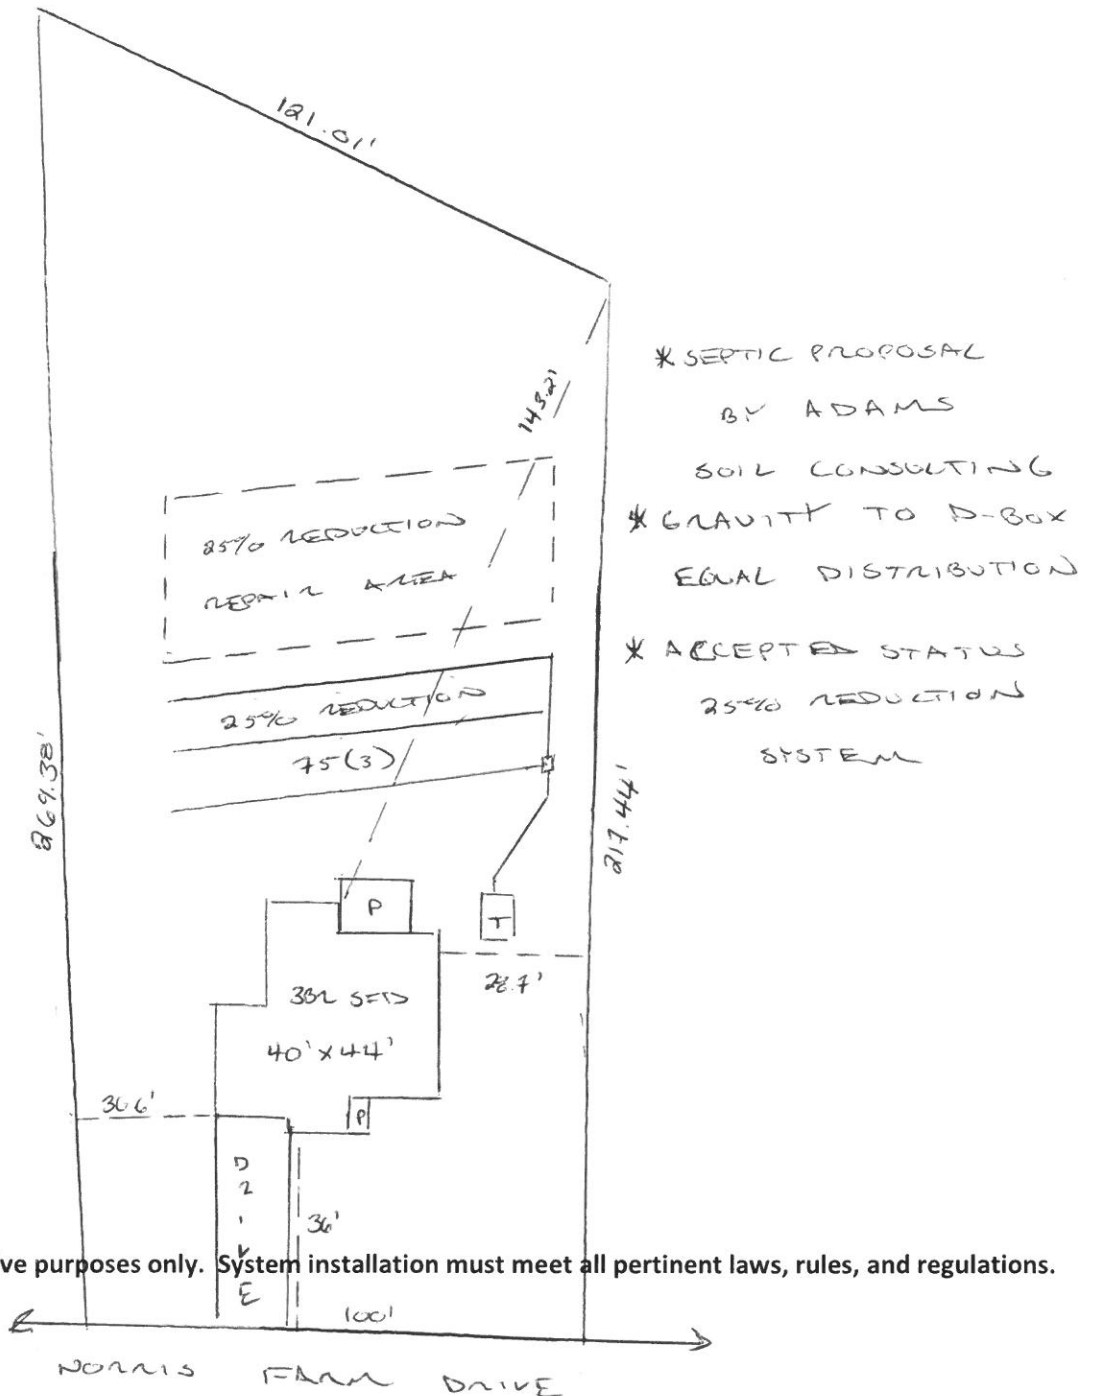 121.01'
143.2'
* SEPTIC PROPOSAL
BY ADAMS
SOIL CONSULTING
* GRAVITY TO D-BOX
EQUAL DISTRIBUTION
* ACCEPTED STATUS
25% REDUCTION
SYSTEM
25% REDUCTION
REPAIR AREA
25% REDUCTION
75(3)
269.38'
217.44'
P
T
28.7'
3BR SFD
40'x44'
36.6'
P
DRIVE
36'
ve purposes only. System installation must meet all pertinent laws, rules, and regulations.
100'
NORRIS FARM DRIVE